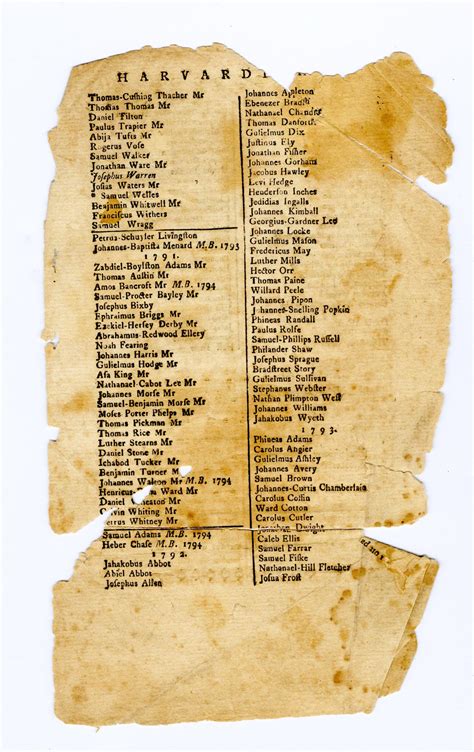 HARVARDI
Thomas-Cushing Thacher Mr
Thomas Thomas Mr
Daniel Tilton
Paulus Trapier Mr
Abija Tufts Mr
Rogerus Vose
Samuel Walker
Jonathan Ware Mr
Josephus Warren
Josias Waters Mr
* Samuel Welles
Benjamin Whitwell Mr
Franciscus Withers
Samuel Wragg
Petrus-Schuyler Livingston
Johannes-Baptista Menard M.B. 1793
1791.
Zabdiel-Boylston Adams Mr
Thomas Austin Mr
Amos Bancroft Mr M.B. 1794
Samuel-Procter Bayley Mr
Josephus Bixby
Ephraimus Briggs Mr
Ezekiel-Hersey Derby Mr
Abrahamus-Redwood Ellery
Noah Fearing
Johannes Harris Mr
Gulielmus Hodge Mr
Asa King Mr
Nathanael-Cabot Lee Mr
Johannes Morse Mr
Samuel-Benjamin Morse Mr
Moses Porter Phelps Mr
Thomas Pickman Mr
Thomas Rice Mr
Luther Stearns Mr
Daniel Stone Mr
Ichabod Tucker Mr
Benjamin Turner M
Johannes Walton Mr M.B. 1794
Henricus Ward Mr
Daniel eaton Mr
vin Whiting Mr
etrus Whitney Mr
Samuel Adams M.B. 1794
Heber Chase M.B. 1794
1792.
Jahakobus Abbot
Abiel Abbot
Josephus Allen
Johannes Appleton
Ebenezer Bradis
Nathanael Chandler
Thomas Danfort
Gulielmus Dix
Justinus Ely
Jonathan Fisher
Johannes Gorham
Jacobus Hawley
Levi Hedge
Henderson Inches
Jedidias Ingalls
Johannes Kimball
Georgius-Gardner Lee
Johannes Locke
Gulielmus Mason
Fredericus May
Luther Mills
Hector Orr
Thomas Paine
Willard Peele
Johannes Pipon
Johannes-Snelling Popkin
Phineas Randall
Paulus Rolfe
Samuel-Phillips Russell
Philander Shaw
Josephus Sprague
Bradstreet Story
Gulielmus Sullivan
Stephanus Webster
Nathan Plimpton West
Johannes Williams
Jahakobus Wyeth
1793.
Phineas Adams
Carolus Angier
Gulielmus Ashley
Johannes Avery
Samuel Brown
Johannes-Curtis Chamberlain
Carolus Coffin
Ward Cotton
Carolus Cutler
Jonathan Dwight
Caleb Ellis
Samuel Farrar
Samuel Fiske
Nathanael-Hill Fletcher
Josua Frost